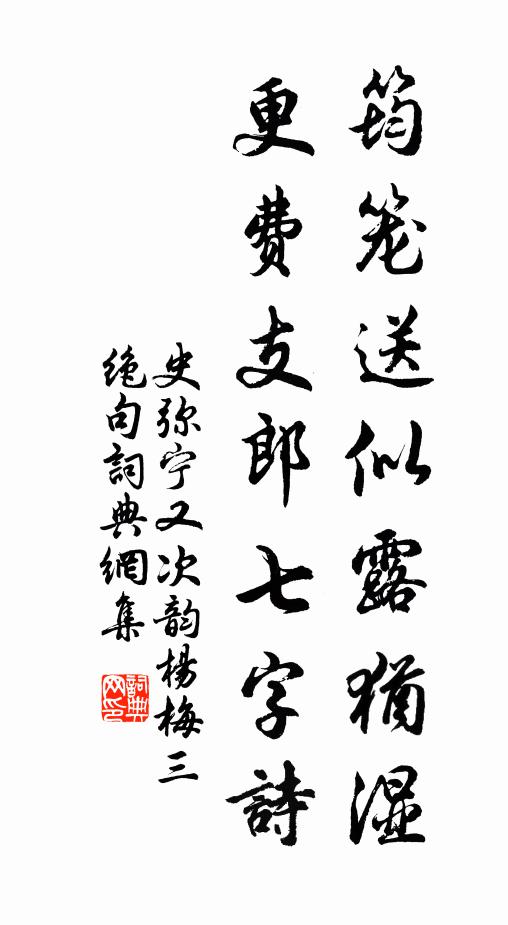 筠笼送似露犹湿
更费支郎七字詩
史弥宁又次韵楊梅三
絶句詞典網集
詞典网印